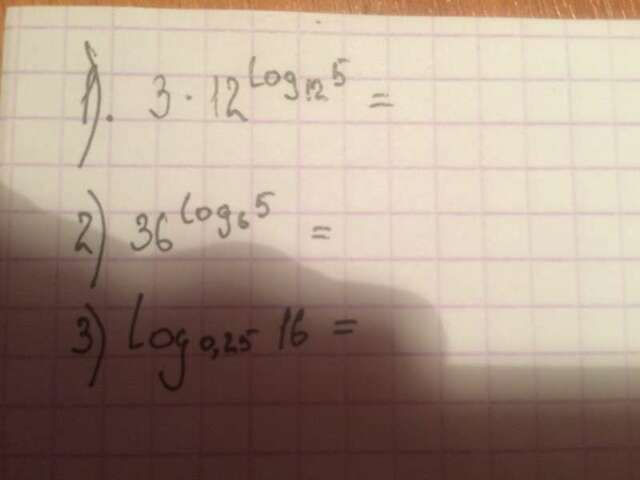 1). 3 · 12^log₁₂5 =
2) 36^log₆5 =
3) log₀,₂₅ 16 =